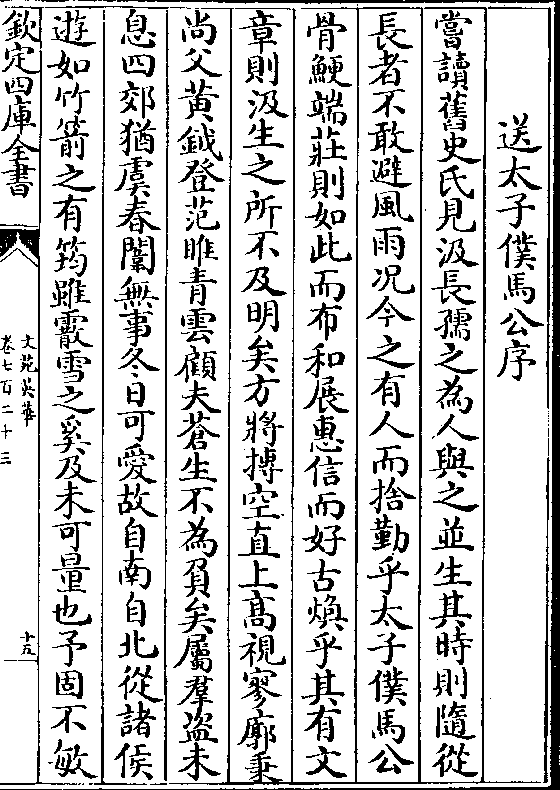 送太子僕馬公序
嘗讀舊史氏見汲長孺之為人與之並生其時則隨從
長者不敢避風雨况今之有人而捨勤乎太子僕馬公
骨鯁端莊則如此而布和展惠信而好古煥乎其有文
章則汲生之所不及明矣方將摶空直上髙視寥廓秉
尚父黄鉞登范睢青雲顧夫蒼生不為負矣屬羣盗未
息四郊猶虞春闈無事冬日可愛故自南自北從諸侯
遊如竹箭之有筠雖霰雪之奚及未可量也予固不敏
欽定四庫全書
文苑英華
卷七百二十三
十五